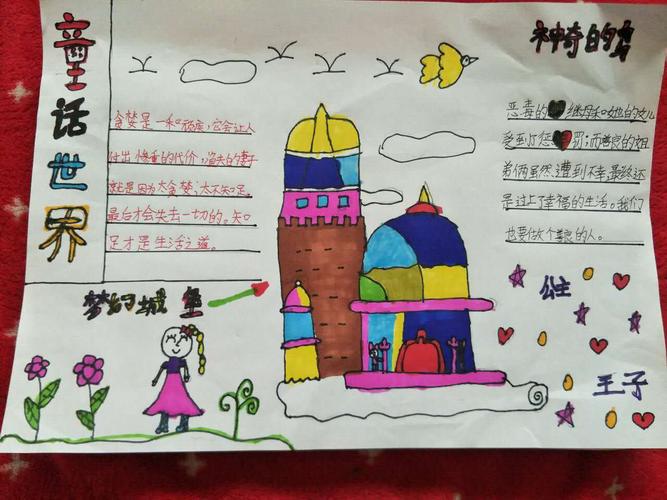 童话世界
神奇的
贪婪是一种顽疾，它会让人
付出惨重的代价，渔夫的妻子
就是因为太贪婪，太不知足，
最后才会失去一切的。知
足才是生活之道。
恶毒的继母和她的女儿
受到了惩罚；而善良的姐
弟俩虽然遭到不幸，最终还
是过上了幸福的生活。我们
也要做个善良的人。
梦幻城堡
公主
王子